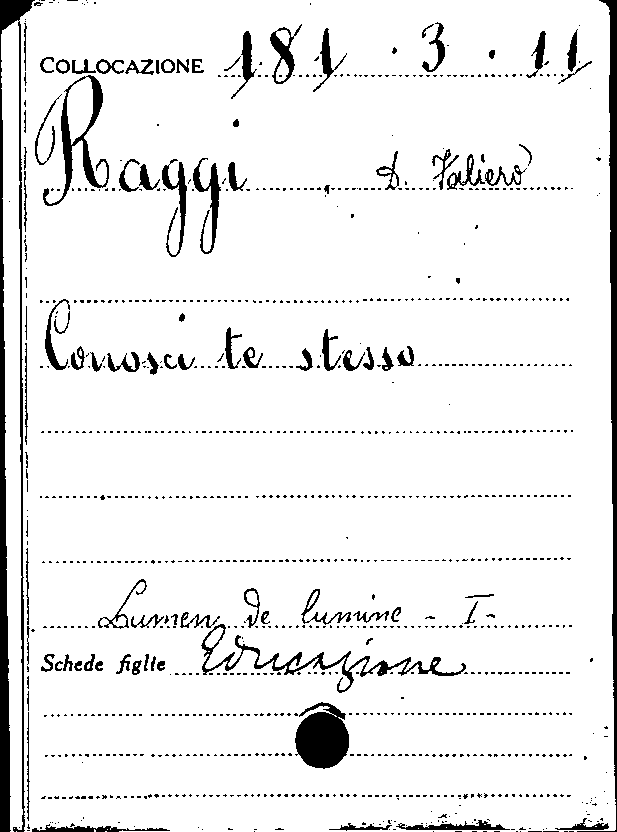 COLLOCAZIONE 181 · 3 · 11
Raggi, D. Valiero
Conosci te stesso
Lumen de lumine - I-
Schede figlie Educazione